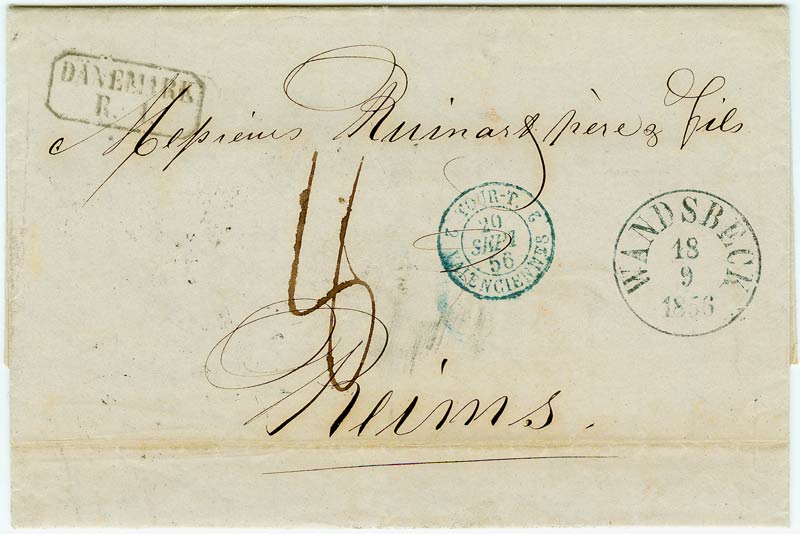 DÄNEMARK
R. 1.
Messieurs Ruinart père & Fils
2 TOUR-T. 2
20
SEPT
56
VALENCIENNES
WANDSBECK
18
9
1856
Reims.